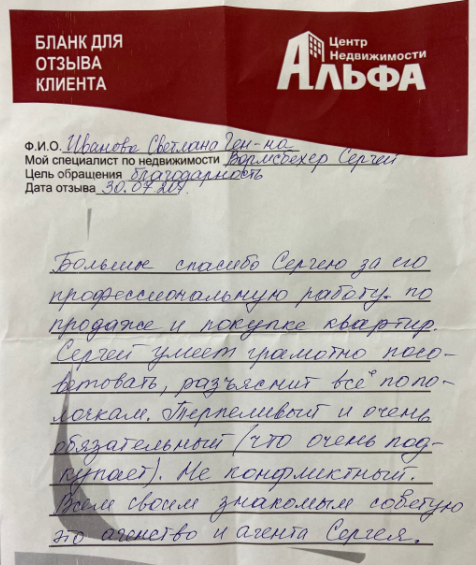 БЛАНК ДЛЯ
ОТЗЫВА
КЛИЕНТА
Центр
Недвижимости
АЛЬФА
Ф.И.О. Иванова Светлана Ген-на
Мой специалист по недвижимости Вормсбехер Сергей
Цель обращения благодарность
Дата отзыва 30.07.20г.
Большое спасибо Сергею за его
профессиональную работу. по
продаже и покупке квартир.
Сергей умеет грамотно посо-
ветовать, разъяснит всё по по-
лочкам. Терпеливый и очень
обязательный (что очень под-
купает). Не конфликтный.
Всем своим знакомым советую
это агенство и агента Сергея.